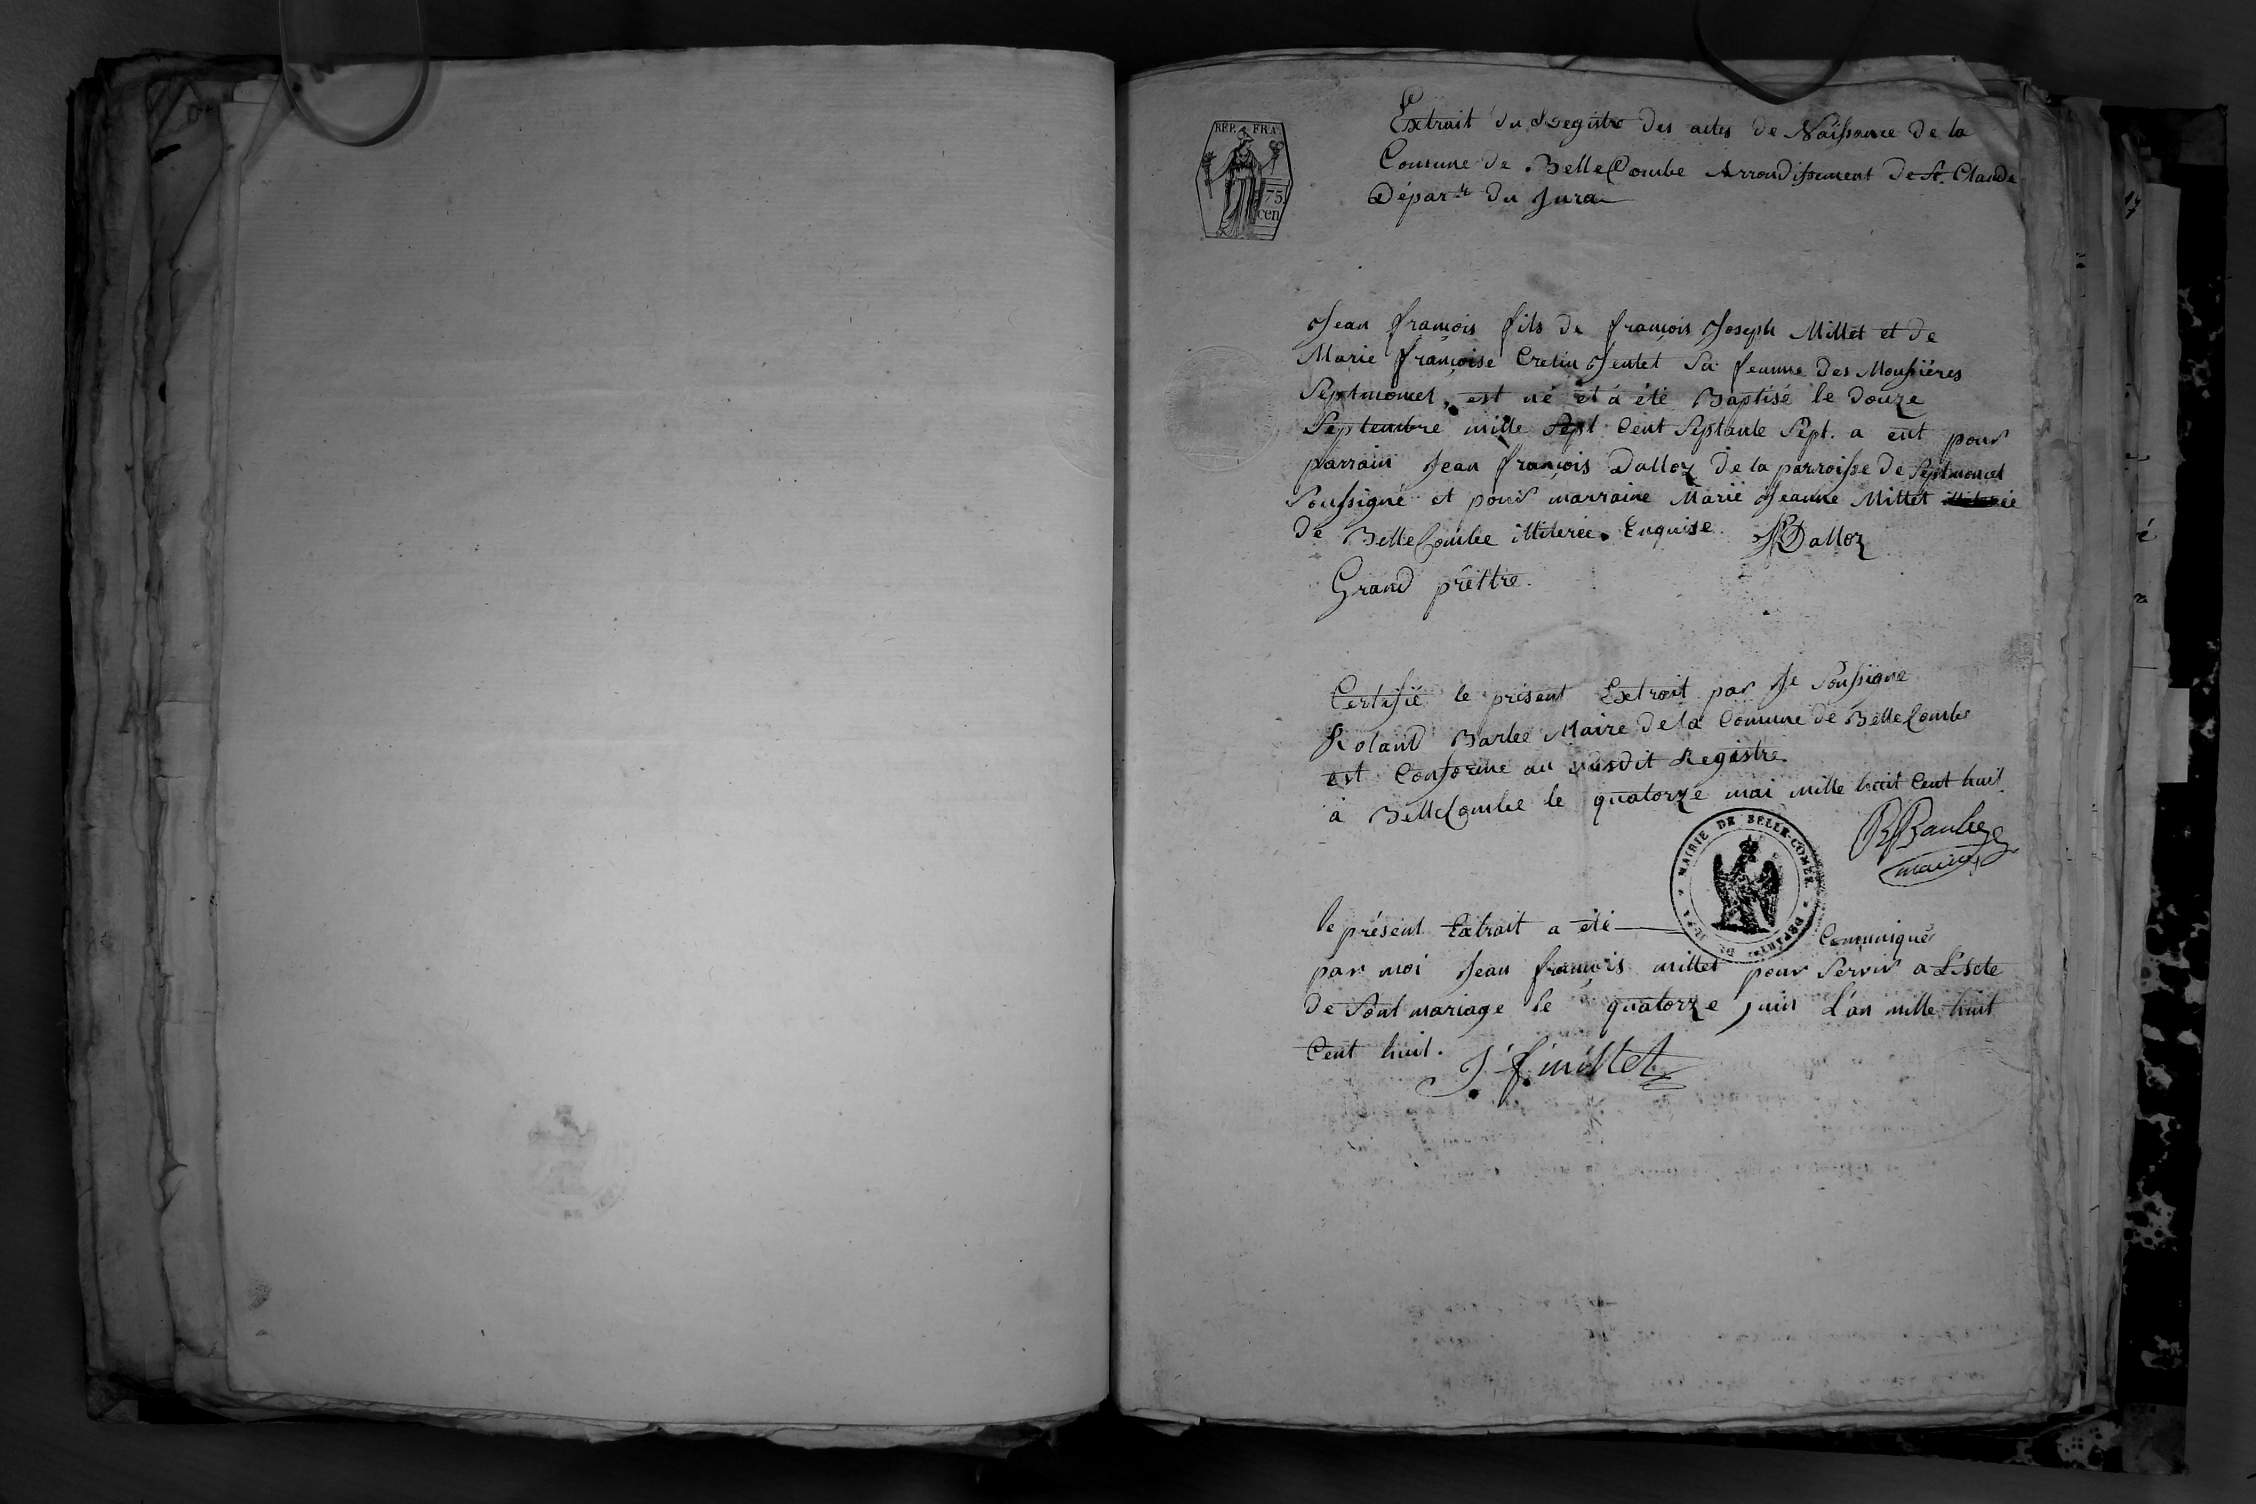 REP. FRA.
75
cen
Extrait du Registre des actes de Naissance de la
Comune de BelleCombe Arrondissement de St. Claude
Départ du Jura
Jean françois fils de françois Joseph Millet et de
Marie françoise Cretin Jentet Sa femme des Moussières
Septmoncel, est né et a été Baptisé le douze
Septembre mille Sept Cent Septante Sept. a eut pour
parrain Jean françois Dalloz de la parroisse de Septmoncel
Soussigné et pour marraine Marie Jeanne Millet
de BelleCombe illiterée. Enquise. JF Dalloz
Grand prêttre.
Certifié le présent Extrait par Je Soussigné
Roland Barbe Maire de la Comune de BelleCombe
est Conforme au susdit Registre
à BelleCombe le quatorze mai mille huit Cent huit
R Barbe
maire
MAIRIE DE BELLE-COMBE. DEPART. DU JURA
le présent Extrait a été Comuniqué
par moi Jean françois millet pour Servir a L'Acte
de Sont mariage le quatorze juin L'an mille huit
Cent huit. J. f. millet